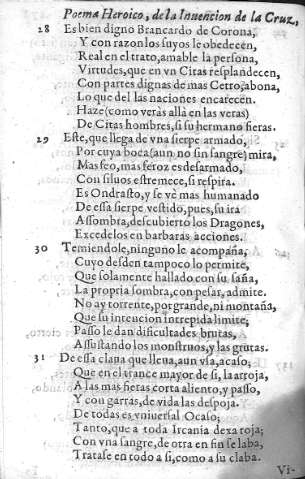 Poema Heroico, de la Inuencion de la Cruz,
28 Es bien digno Brancardo de Corona,
Y con razon los suyos le obedecen,
Real en el trato, amable la persona,
Virtudes, que en vn Citas resplandecen,
Con partes dignas de mas Cetro, abona,
Lo que del las naciones encarecen.
Haze (como veràs allà en las veras)
De Citas hombres, si su hermano fieras.
29 Este, que llega de vna sierpe armado,
Por cuya boca (aun no sin sangre) mira,
Mas feo, mas feroz es desarmado,
Con siluos estremece, si respira.
Es Ondrasto, y se vè mas humanado
De essa sierpe vestido, pues, su ira
Assombra, descubierto los Dragones,
Excedelos en barbaras acciones.
30 Temiendole, ninguno le acompaña,
Cuyo desden tampoco lo permite,
Que solamente hallado con su saña,
La propria sombra, con pesar, admite.
No ay torrente, por grande, ni montaña,
Que su intencion intrepida limite,
Passo le dan dificultades brutas,
Assustando los monstruos, y las grutas.
31 De essa claua que lleua, aun vsa, acaso;
Que en el trance mayor de si, la arroja,
A las mas fieras corta aliento, y passo,
Y con garras, de vida las despoja.
De todas es vniuersal Ocaso;
Tanto, que a toda Ircania dexa roja;
Con vna sangre, de otra en fin se laba,
Tratase en todo a si, como a su claba.
Vi-